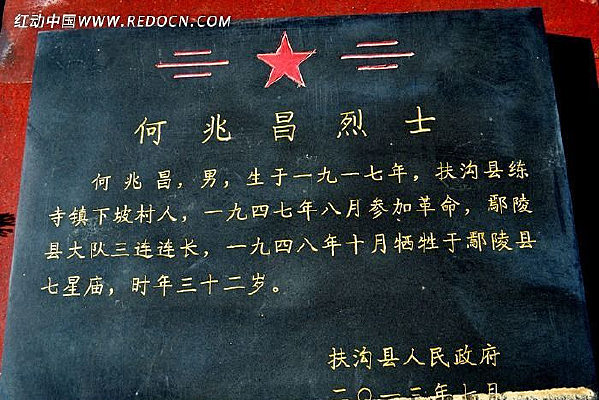 红动中国 WWW.REDOCN.COM
何兆昌烈士
何兆昌，男，生于一九一七年，扶沟县练
寺镇下坡村人，一九四七年八月参加革命，鄢陵
县大队三连连长，一九四八年十月牺牲于鄢陵县
七星庙，时年三十二岁。
扶沟县人民政府
二〇一三年七月